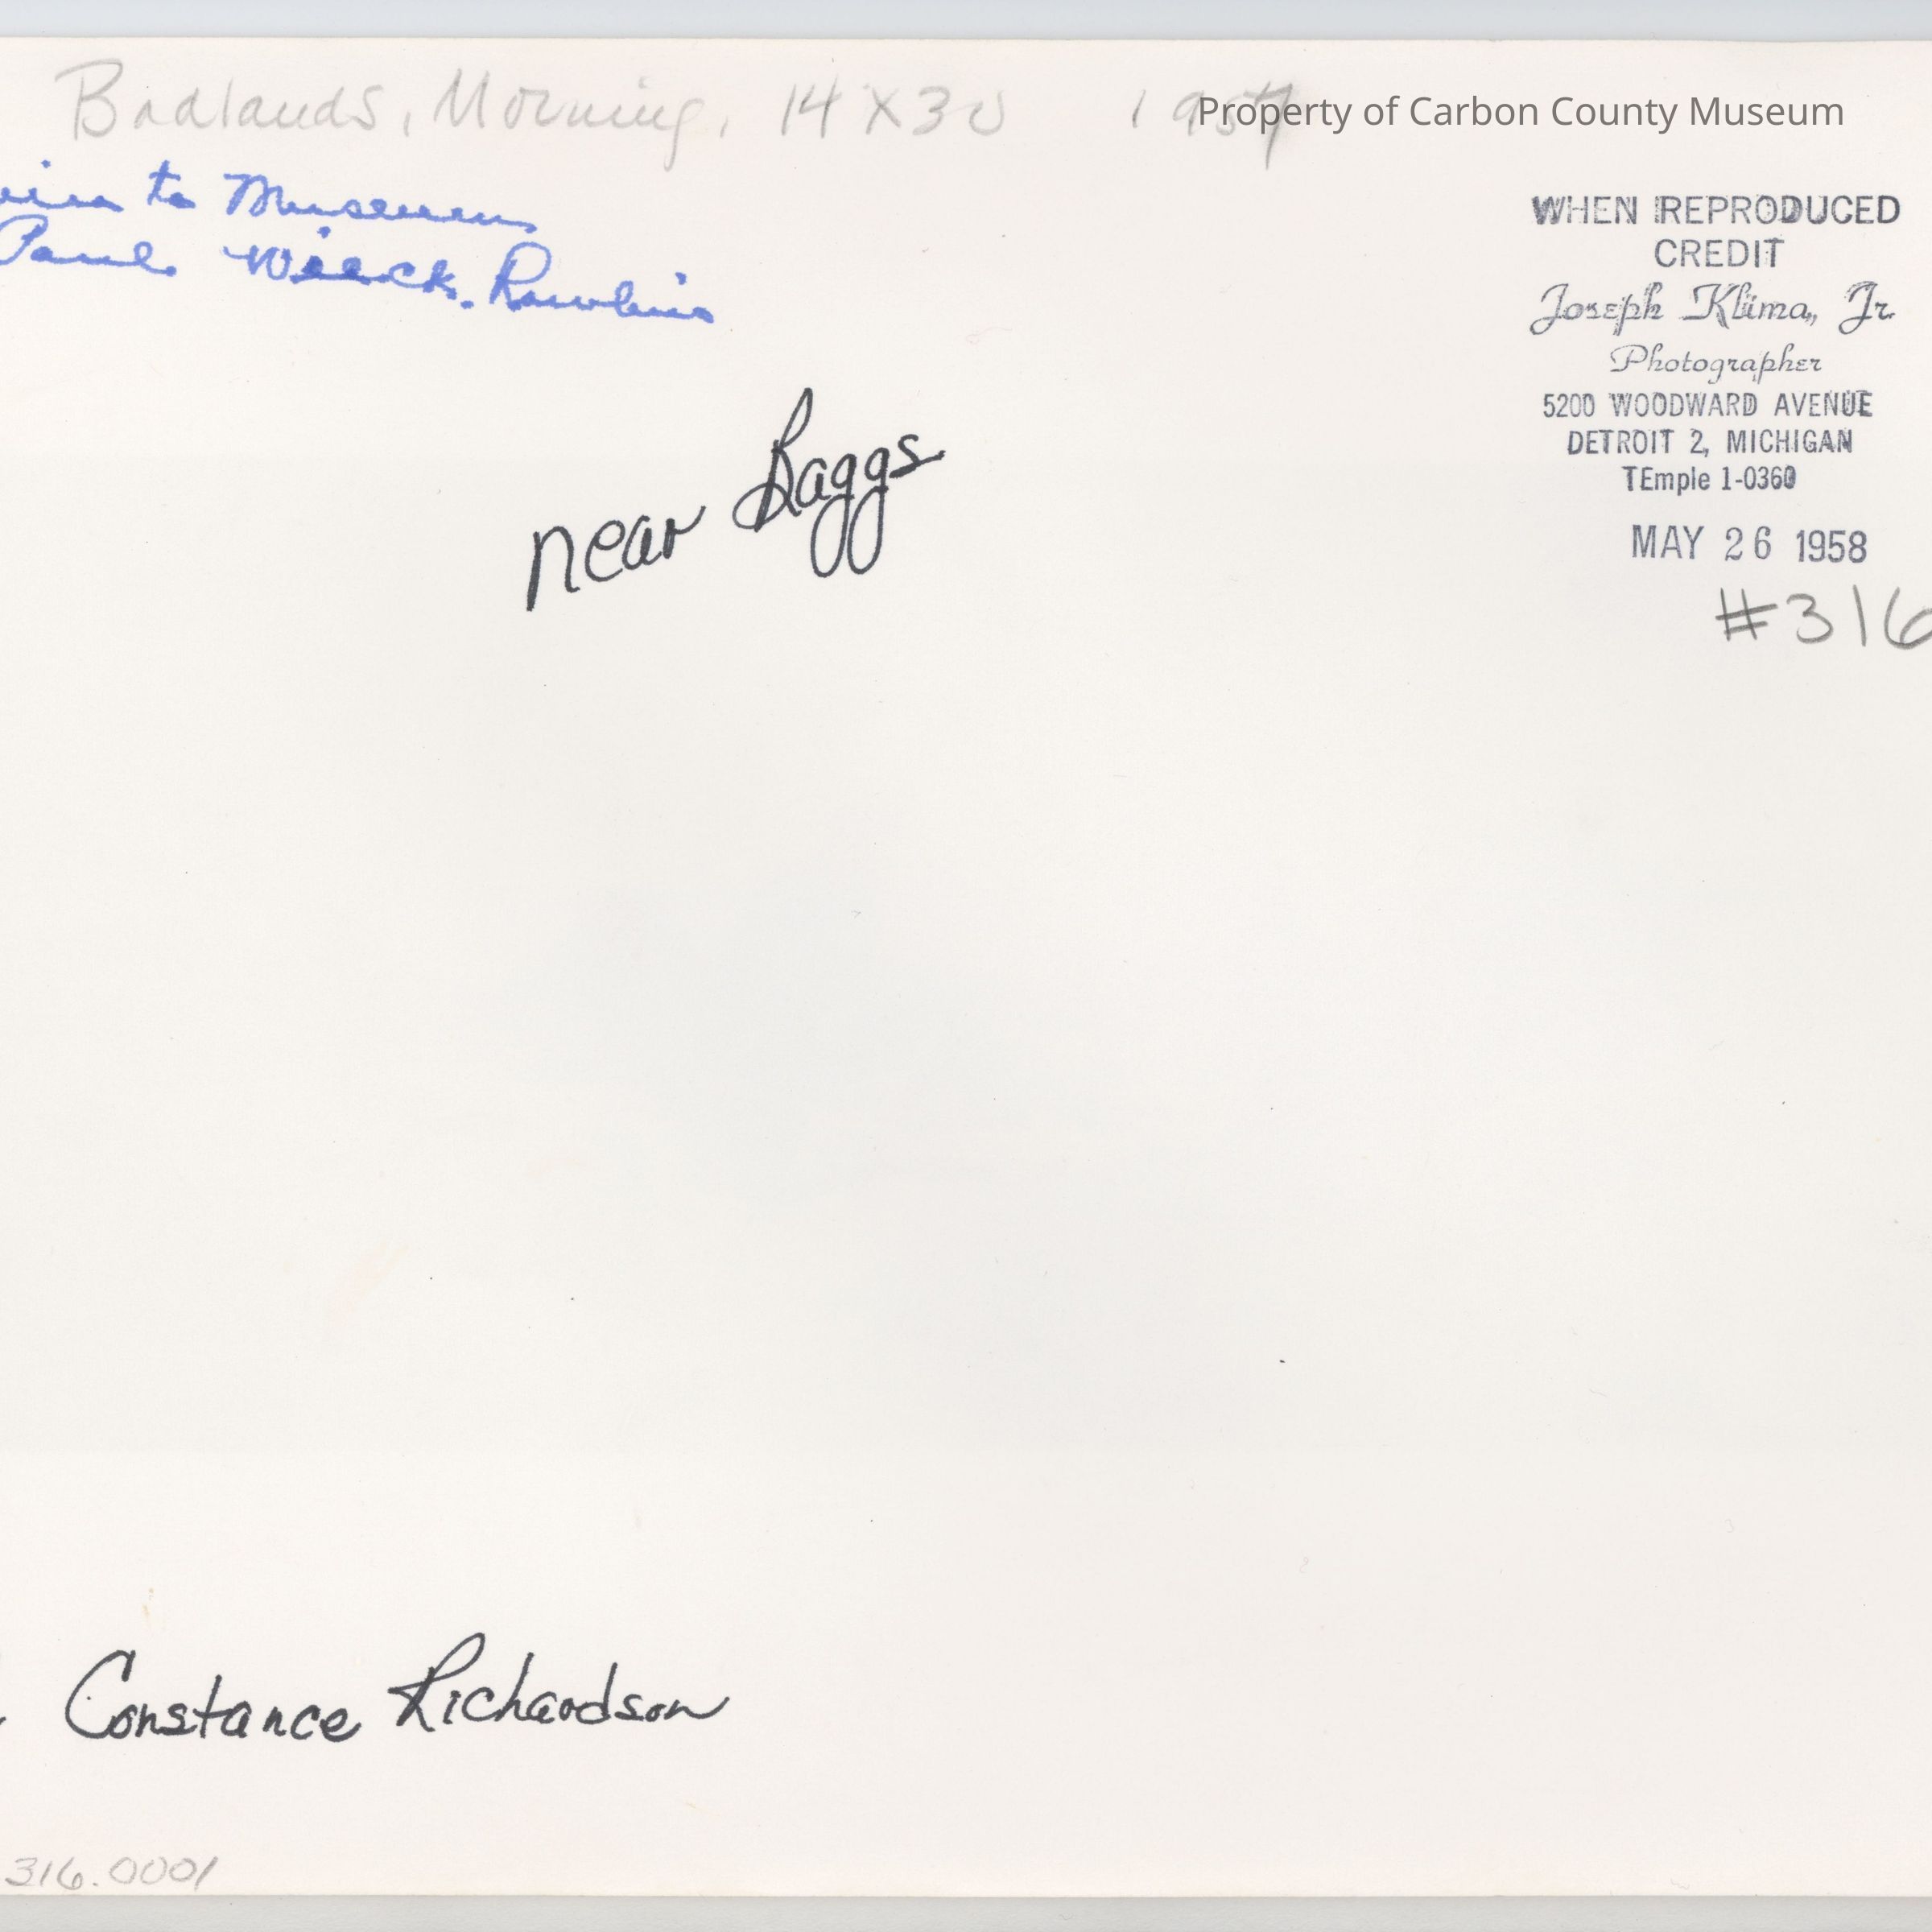 Badlands, Morning, 14 X 30 1957
Property of Carbon County Museum
to Museum
Paul Rawlins
WHEN REPRODUCED
CREDIT
Joseph Klima, Jr.
Photographer
5200 WOODWARD AVENUE
DETROIT 2, MICHIGAN
TEmple 1-0360
MAY 26 1958
#316
near Baggs
Constance Richardson
316.0001